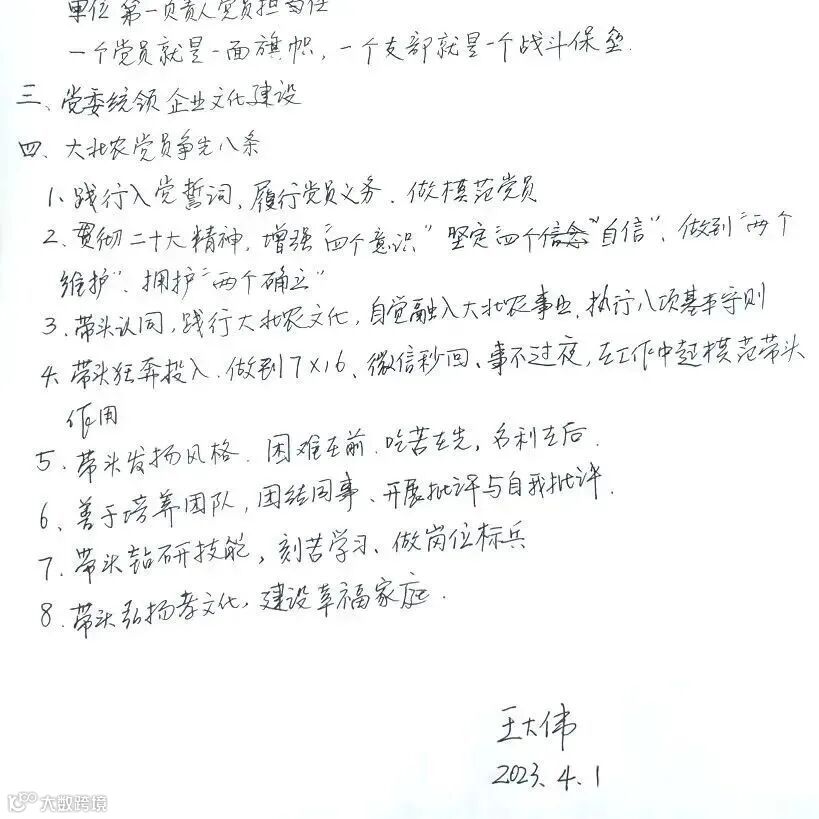 单位第一负责人党员担当任
一个党员就是一面旗帜,一个支部就是一个战斗保垒.
三、党委统领企业文化建设
四、大北农党员争先八条
1、践行入党誓词,履行党员义务.做模范党员
2.贯彻二十大精神,增强“四个意识”坚定“四个信念“自信”、做到“两个
维护”、拥护“两个确立”
3.带头认同,践行大北农文化,自觉融入大北农事业,执行八项基本守则
4、带头狂奔投入.做到7×16、微信秒回、事不过夜,在工作中起模范带头
作用
5.带头发扬风格.困难在前.吃苦在先,名利在后.
6、善于培养团队,团结同事、开展批评与自我批评.
7.带头钻研技能,刻苦学习、做岗位标兵
8.带头弘扬孝文化,建设幸福家庭.
王大伟
2023.4.1
大数跨境